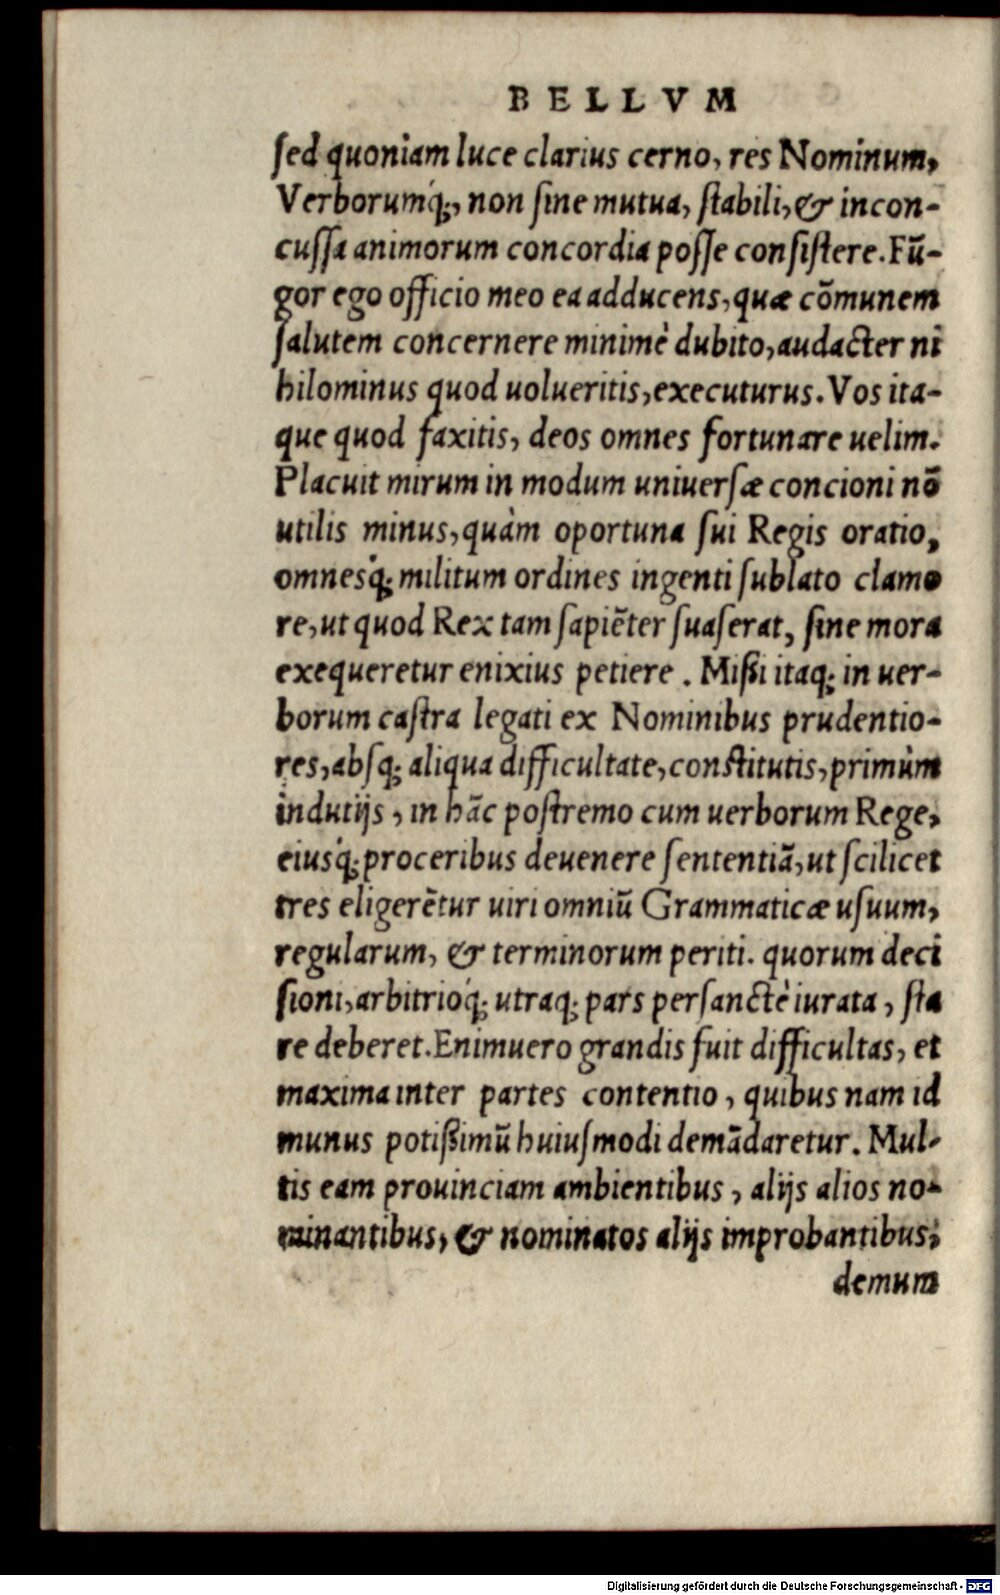 BELLVM
ſed quoniam luce clarius cerno, res Nominum,
Verborumq́;, non ſine mutua, ſtabili, & incon-
cuſſa animorum concordia poſſe conſiſtere. Fũ-
gor ego officio meo ea adducens, quæ cõmunem
ſalutem concernere minimè dubito, audacter ni
hilominus quod uolueritis, executurus. Vos ita-
que quod faxitis, deos omnes fortunare uelim.
Placuit mirum in modum uniuerſæ concioni nõ
utilis minus, quàm oportuna ſui Regis oratio,
omnesq́; militum ordines ingenti ſublato clamo
re, ut quod Rex tam ſapiẽter ſuaſerat, ſine mora
exequeretur enixius petiere. Mißi itaq; in uer-
borum caſtra legati ex Nominibus prudentio-
res, abſq; aliqua difficultate, conſtitutis, primùm
indutijs, in hãc poſtremo cum uerborum Rege,
eiusq́; proceribus deuenere ſententiã, ut ſcilicet
tres eligerẽtur uiri omniũ Grammaticæ uſuum,
regularum, & terminorum periti. quorum deci
ſioni, arbitrioq́; utraq; pars perſanctè iurata, ſta
re deberet. Enimuero grandis fuit difficultas, et
maxima inter partes contentio, quibus nam id
munus potißimũ huiuſmodi demãdaretur. Mul-
tis eam prouinciam ambientibus, alijs alios no-
minantibus, & nominatos alijs improbantibus;
demum
Digitalisierung gefördert durch die Deutsche Forschungsgemeinschaft - DFG